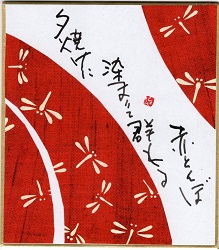 夕焼けに
染まって
群れる
赤とんぼ